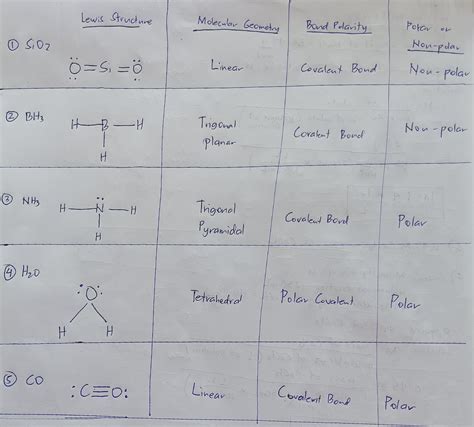 Lewis Structure Molecular Geometry Bond Polarity Polar or
Non-polar
① SiO2
Ö=Si=Ö Linear Covalent Bond Non-polar
② BH3
H—B—H Trigonal Covalent Bond Non-polar
planar
H
③ NH3
H—N—H Trigonal Covalent Bond Polar
Pyramidal
H
④ H2O
:O: Tetrahedral Polar Covalent Polar
H H
⑤ CO
:C≡O: Linear Covalent Bond Polar